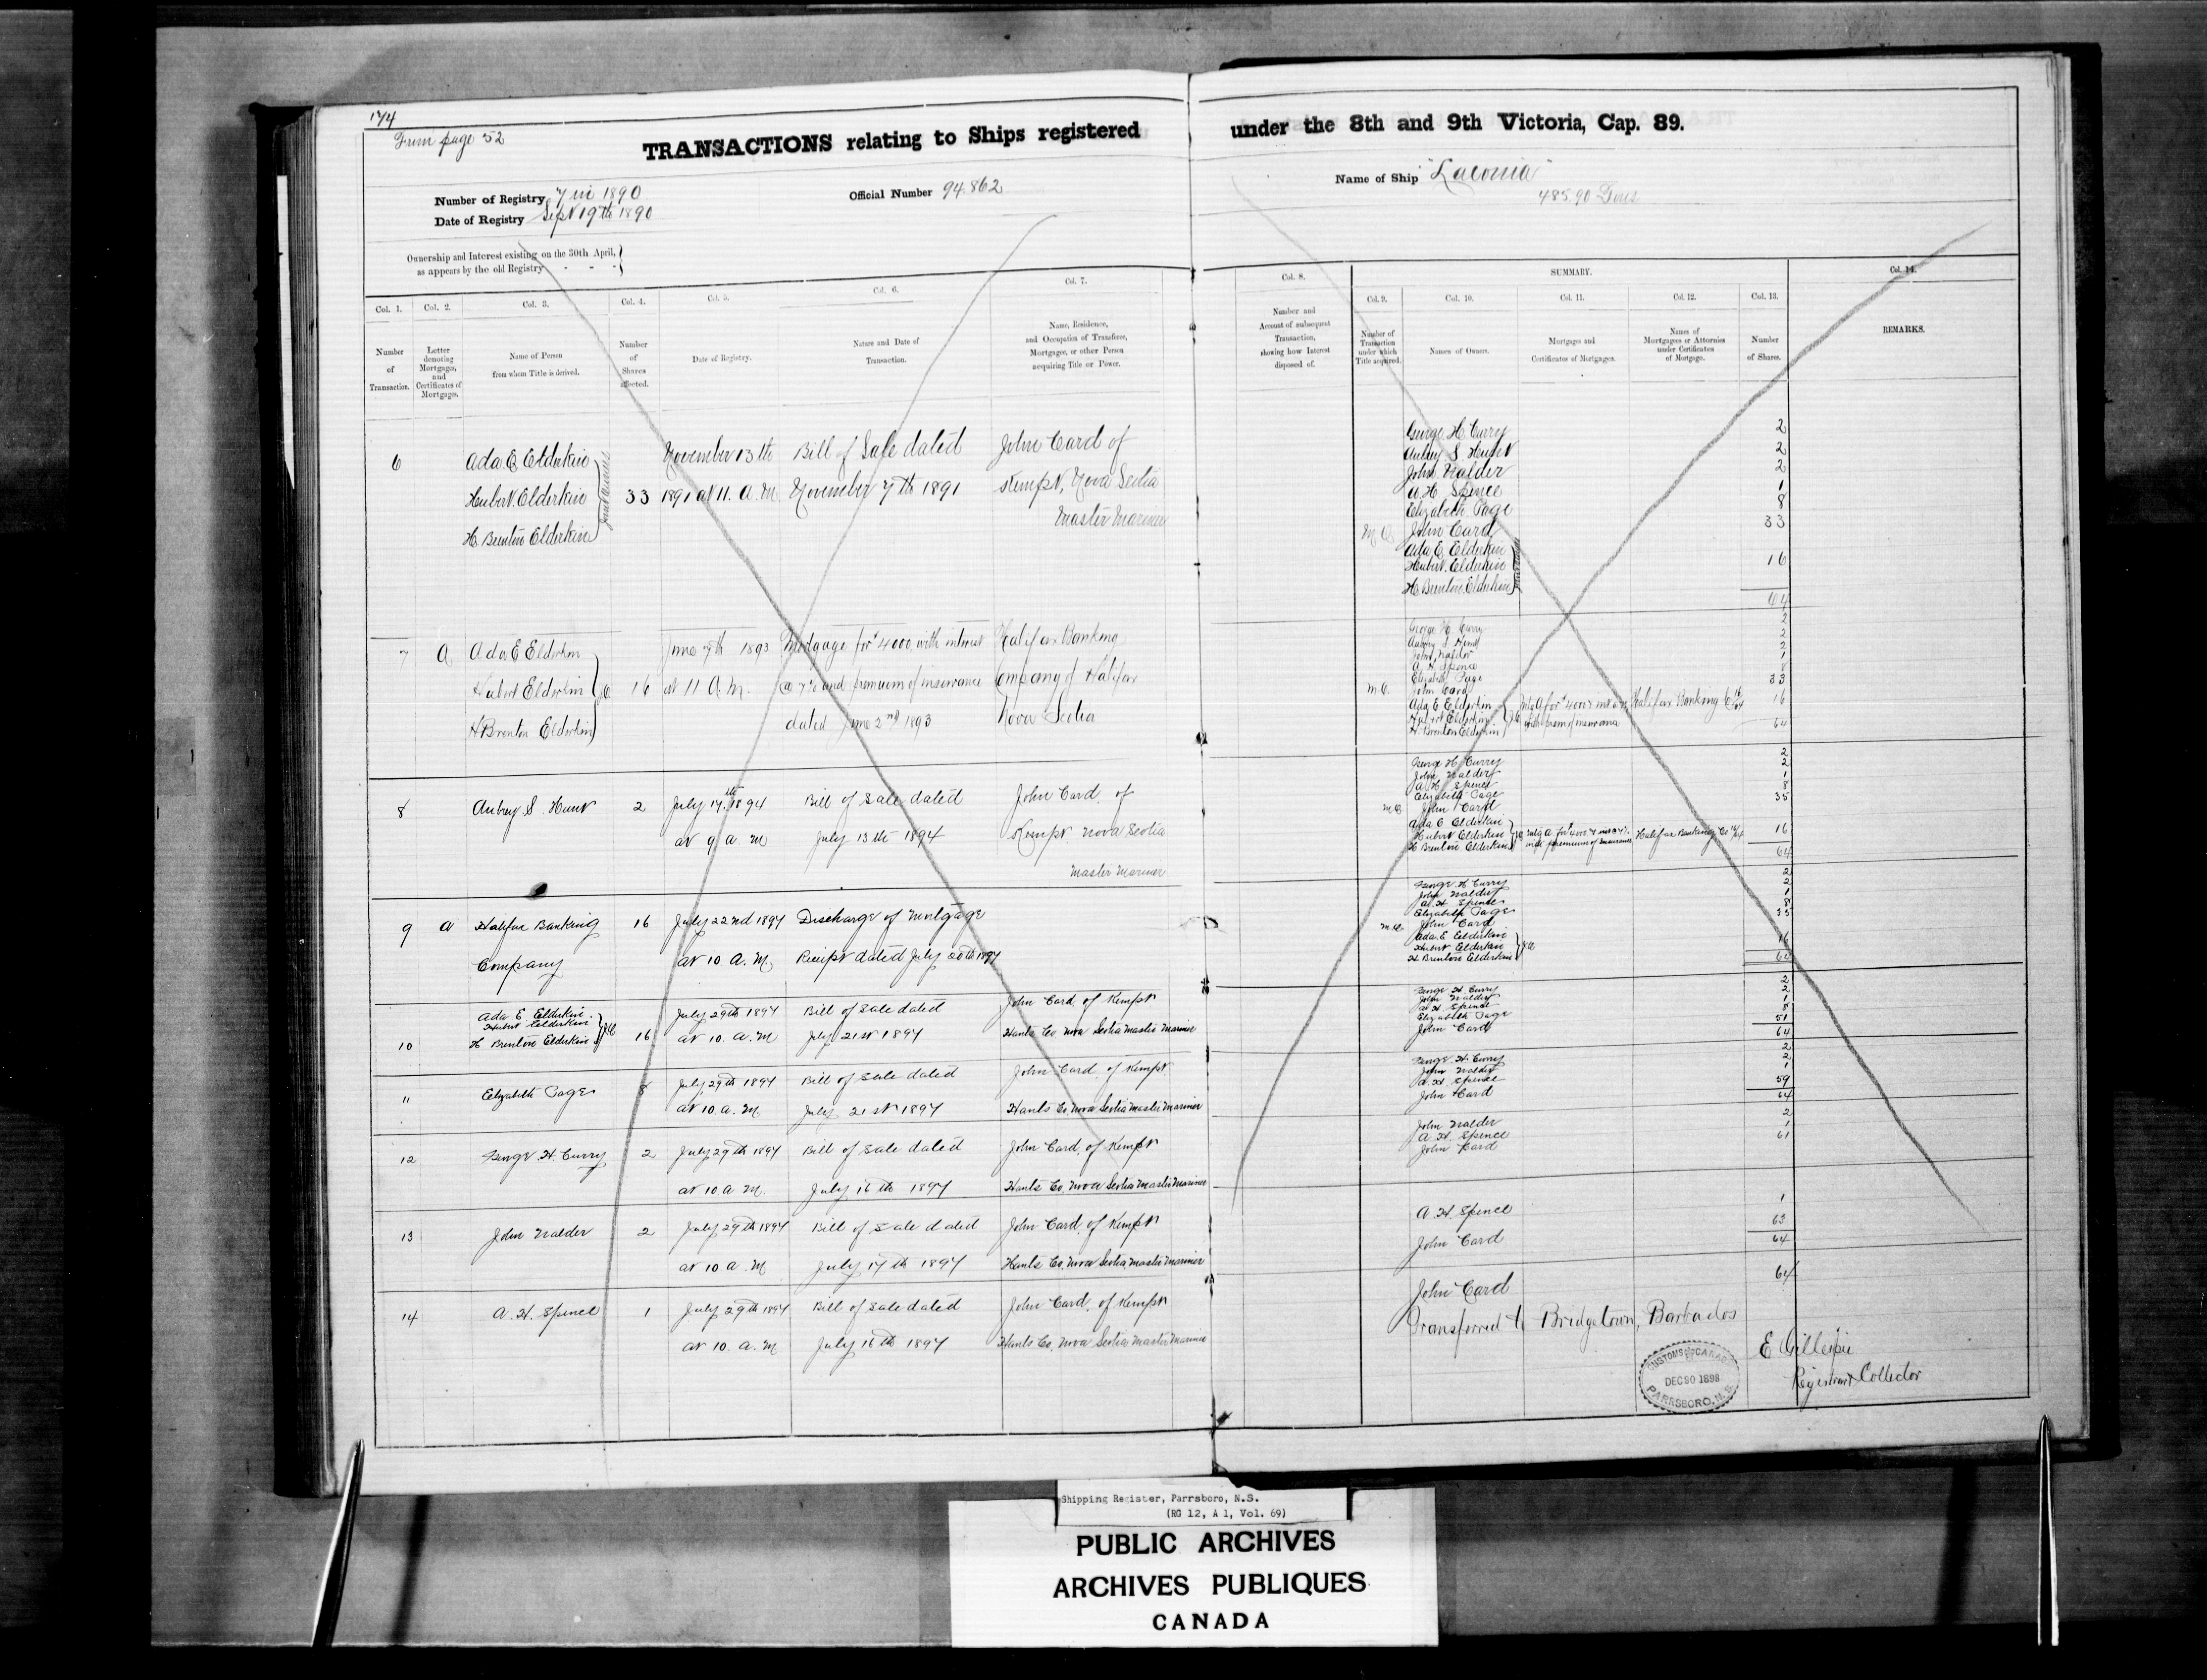 174
From page 52
TRANSACTIONS relating to Ships registered under the 8th and 9th Victoria, Cap. 89.
Number of Registry 7 in 1890
Official Number 94.862
Name of Ship "Laconia"
485.90 Tons
Date of Registry Sept 19th 1890
Ownership and Interest existing on the 30th April,
as appears by the old Registry - - -
SUMMARY.
Col. 1.
Col. 2.
Col. 3.
Col. 4.
Col. 5.
Col. 6.
Col. 7.
Col. 8.
Col. 9.
Col. 10.
Col. 11.
Col. 12.
Col. 13.
Col. 14.
Number
of
Transaction.
Letter
denoting
Mortgages,
and
Certificates of
Mortgages.
Name of Person
from whom Title is derived.
Number
of
Shares
affected.
Date of Registry.
Nature and Date of
Transaction.
Name, Residence,
and Occupation of Transferee,
Mortgagee, or other Person
acquiring Title or Power.
Number and
Account of subsequent
Transaction,
showing how Interest
disposed of.
Number of
Transaction
under which
Title acquired.
Names of Owners.
Mortgages and
Certificates of Mortgages.
Names of
Mortgagees or Attornies
under Certificates
of Mortgage.
Number
of Shares.
REMARKS.
6
Ada E Elderkin
Hubert Elderkin
H. Brenton Elderkin
33
November 13th
1891 at 11. A.M
Bill of Sale dated
November 7th 1891
John Card of
Kempt, Nova Scotia
Master Mariner
George H Curry 2
Aubrey S Hunt 2
John Nalder 2
A.H. Spence 1
Elizabeth Page 8
M.O. John Card 33
Ada E Elderkin
Hubert Elderkin 16
H Brenton Elderkin
64
7
A
Ada E Elderkin
Hubert Elderkin
H Brenton Elderkin
16
June 7th 1893
at 11 A.M.
Mortgage for $4000 with interest
@ 7% and premium of insurance
dated June 2nd 1893
Halifax Banking
Company of Halifax
Nova Scotia
George H. Curry 2
Aubrey S Hunt 2
John Nalder 2
A H Spence 1
Elizabeth Page 8
M.O. John Card 33
Ada E Elderkin
Hubert Elderkin 16
H. Brenton Elderkin
Halifax Banking Co
64
8
Aubrey S. Hunt
2
July 17th 1894
at 9 a. m
Bill of Sale dated
July 13th 1894
John Card. of
Kempt. Nova Scotia
Master Mariner
George H. Curry 2
John Nalder 2
A H Spence 1
Elizabeth Page 8
M.O. John Card 35
Ada E Elderkin
Hubert Elderkin 16
H Brenton Elderkin
Halifax Banking Co
64
9
A
Halifax Banking
Company
16
July 22nd 1897
at 10. A. M,
Discharge of Mortgage
Receipt dated July 20th 1897
George H Curry 2
John Nalder 2
A. H Spence 1
Elizabeth Page 8
M.O. John Card 35
Ada E Elderkin
Hubert Elderkin 16
H Brenton Elderkin
64
10
Ada E Elderkin.
Hubert Elderkin
H Brenton Elderkin
16
July 29th 1897
at 10. A. M
Bill of Sale dated
July 21st 1897
John Card. of Kempt
Hants Co, Nova Scotia Master Mariner
George H. Curry 2
John Nalder 2
A H Spence 1
Elizabeth Page 8
John Card 51
64
11
Elizabeth Page
8
July 29th 1897
at 10. a. M
Bill of Sale dated
July 21st 1897
John Card. of Kempt
Hants Co, Nova Scotia Master Mariner
George H. Curry 2
John Nalder 2
A. H Spence 1
John Card 59
64
12
George H. Curry
2
July 29th 1897
at 10 a M.
Bill of Sale dated
July 16th 1897
John Card, of Kempt
Hants Co, Nova Scotia Master Mariner
John Nalder 2
A. H. Spence 1
John Card 61
13
John Nalder
2
July 29th 1897
at 10 a. M
Bill of Sale dated
July 17th 1897
John Card, of Kempt
Hants Co, Nova Scotia, Master Mariner
A. H. Spence 1
John Card 63
64
14
A. H. Spence
1
July 29th 1897
at 10. a. M
Bill of Sale dated
July 16th 1897
John Card, of Kempt
Hants Co, Nova Scotia Master Mariner
John Card 64
Transferred to Bridgetown, Barbados
E Gillespie
Registrar & Collector
CUSTOMS CANADA
DEC 20 1898
PARRSBORO, N.S.
Shipping Register, Parrsboro, N.S.
(RG 12, A 1, Vol. 69)
PUBLIC ARCHIVES
ARCHIVES PUBLIQUES
CANADA